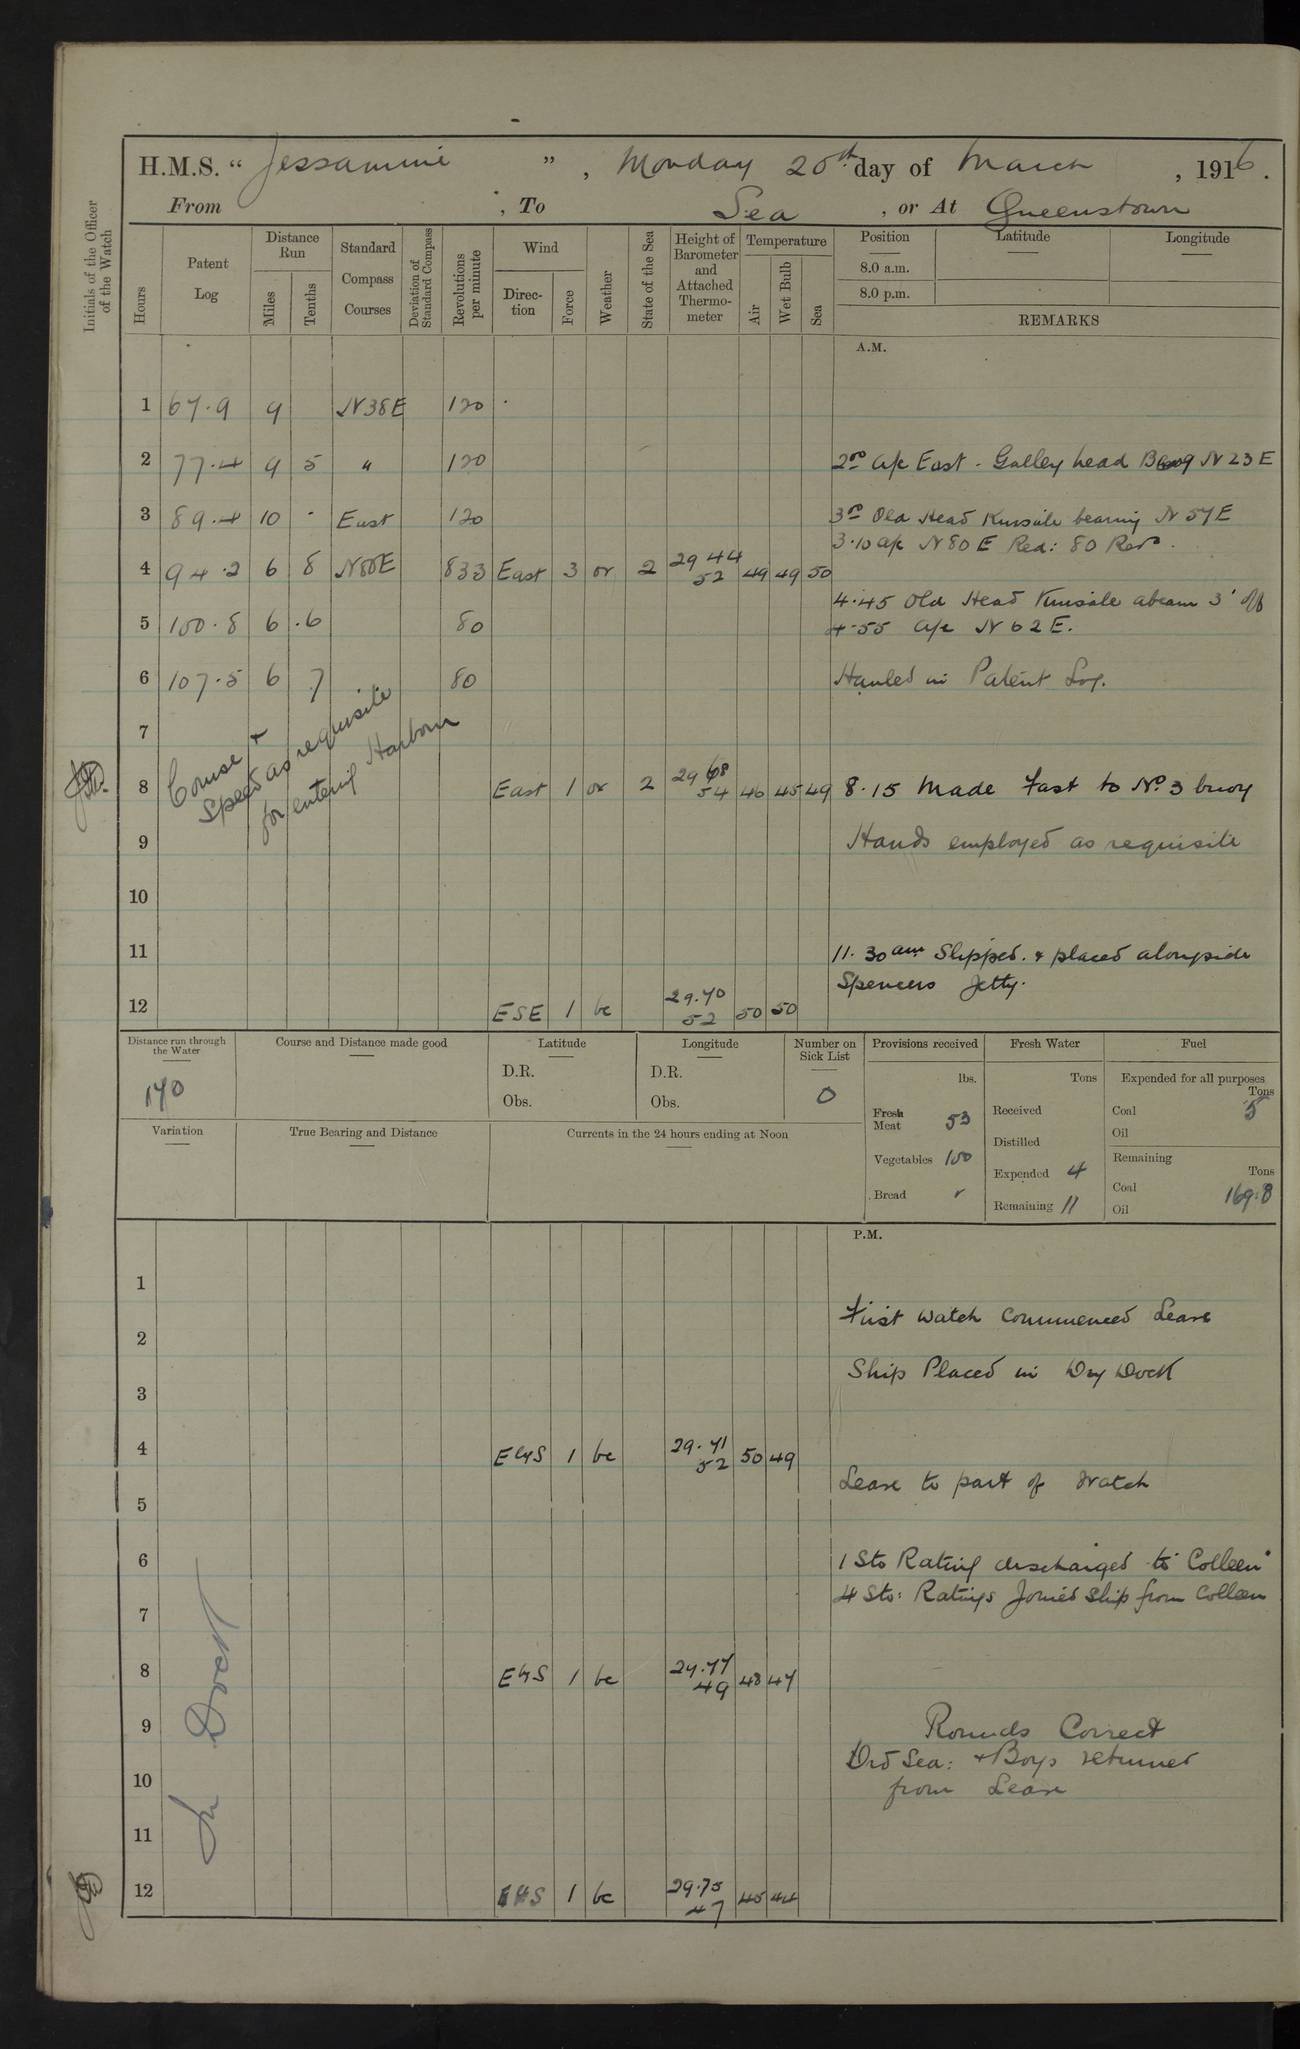 H.M.S. “ Jessamine ” , Monday 20th day of March , 1916 .
From , To Sea , or At Queenstown
Initials of the Officer of the Watch
Hours
Patent Log
Distance Run
Miles
Tenths
Standard Compass Courses
Deviation of Standard Compass
Revolutions per minute
Wind
Direc-tion
Force
Weather
State of the Sea
Height of Barometer and Attached Thermo-meter
Temperature
Air
Wet Bulb
Sea
Position Latitude Longitude
8.0 a.m.
8.0 p.m.
REMARKS
A.M.
1 67.9 9 N38E 120
2 77.4 9 5 " 120 2.00 a/c East - Galley head Bearg N 23 E
3 89.4 10 · East 120 3.00 Old Head Kinsale bearing N 57 E
3.10 a/c N 80 E Red: 80 Revs.
4 94.2 6 8 N80E 833 East 3 or 2 29 44 52 49 49 50
4.45 Old Head Kinsale abeam 3' off
5 100.8 6 .6 80 4.55 a/c N 62 E.
6 107.5 6 7 80 Hauled in Patent Log.
7
Course + Speed as requisite for entering Harbour
8 East 1 or 2 29 68 54 46 45 49 8.15 Made Fast to No. 3 buoy
9 Hands employed as requisite
10
11 11.30 am Slipped. + placed alongside
Spencers Jetty.
12 ESE 1 bc 29.70 52 50 50
Distance run through the Water
170
Course and Distance made good
Latitude
D.R.
Obs.
Longitude
D.R.
Obs.
Number on Sick List
0
Provisions received
lbs.
Fresh Meat 53
Vegetables 100
Bread
Fresh Water
Tons
Received
Distilled
Expended 4
Remaining 11
Fuel
Expended for all purposes
Tons
Coal 5
Oil
Remaining
Tons
Coal 169.8
Oil
Variation
True Bearing and Distance
Currents in the 24 hours ending at Noon
P.M.
1
First Watch commenced Leave
2
Ship Placed in Dry Dock
3
4 E by S 1 bc 29.71 52 50 49
Leave to part of Watch
5
6 1 Sto Rating discharged to "Colleen"
4 Sto: Ratings Joined Ship from Colleen
7
8 E by S 1 bc 29.77 49 48 47
In Dock
9 Rounds Correct
Ord Sea: + Boys returned
10 from Leave
11
12 E by S 1 bc 29.75 47 45 44